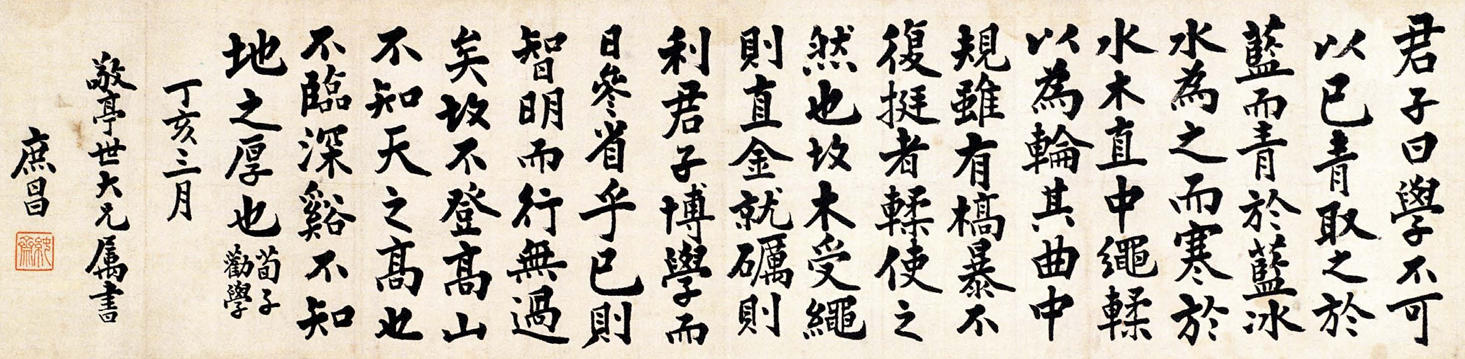 君子曰學不可
以已青取之於
藍而青於藍冰
水為之而寒於
水木直中繩輮
以為輪其曲中
規雖有槁暴不
復挺者輮使之
然也故木受繩
則直金就礪則
利君子博學而
日參省乎已則
智明而行無過
矣故不登高山
不知天之高也
不臨深谿不知
地之厚也
荀子
勸學
丁亥三月
敬亭世大兄屬書
庶昌
純齋